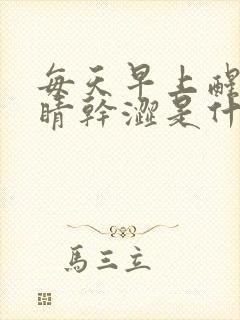 每天早上醒
睛幹澀是什
馬三立